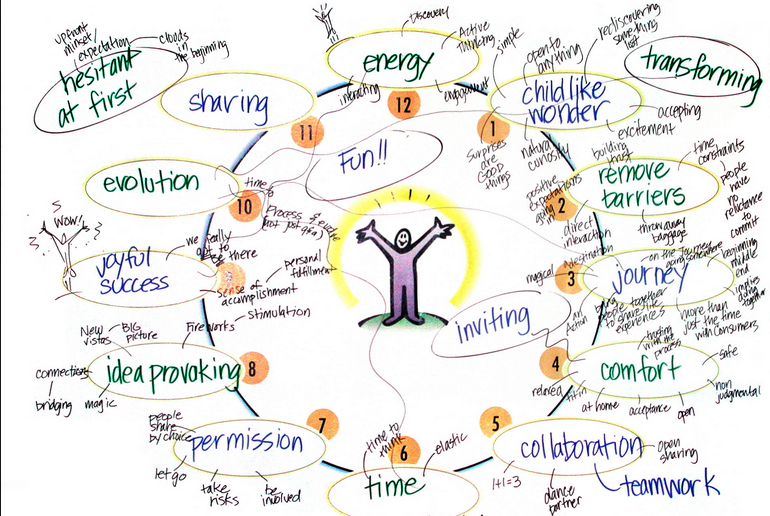 Discovery
Active
Thinking
energy
interacting
engagement
12
upfront
mindset/
expectation
clouds
in
the beginning
hesitant
at first
sharing
11
simple
open to
anything
rediscovering
something
lost
childlike
wonder
1
accepting
excitement
natural
curiosity
surprises
are
good
things
transforming
Fun!!
building
trust
time
constraints
remove
barriers
2
positive
expectations
going in
direct
interaction
throw away
baggage
people
have
no
reluctance
to
commit
evolution
10
time
WOW!
joyful
success
we really
got to
there
sense of
accomplishment
personal
fulfillment
on the journey
going somewhere
journey
3
magical
destination
beginning
middle
end
bring
people together
to share life
experiences
more than
just the time
with consumers
inviting
an
Action
New
vistas
BIG
picture
Fireworks
Stimulation
idea provoking
8
connections
bridging
magic
trusting
with the
process
comfort
4
safe
non
judgmental
relaxed
at home
acceptance
open
people
share
by choice
permission
7
let go
take
risks
be
involved
time to
think
elastic
6
time
5
collaboration
open
sharing
1+1=3
dance
partner
teamwork